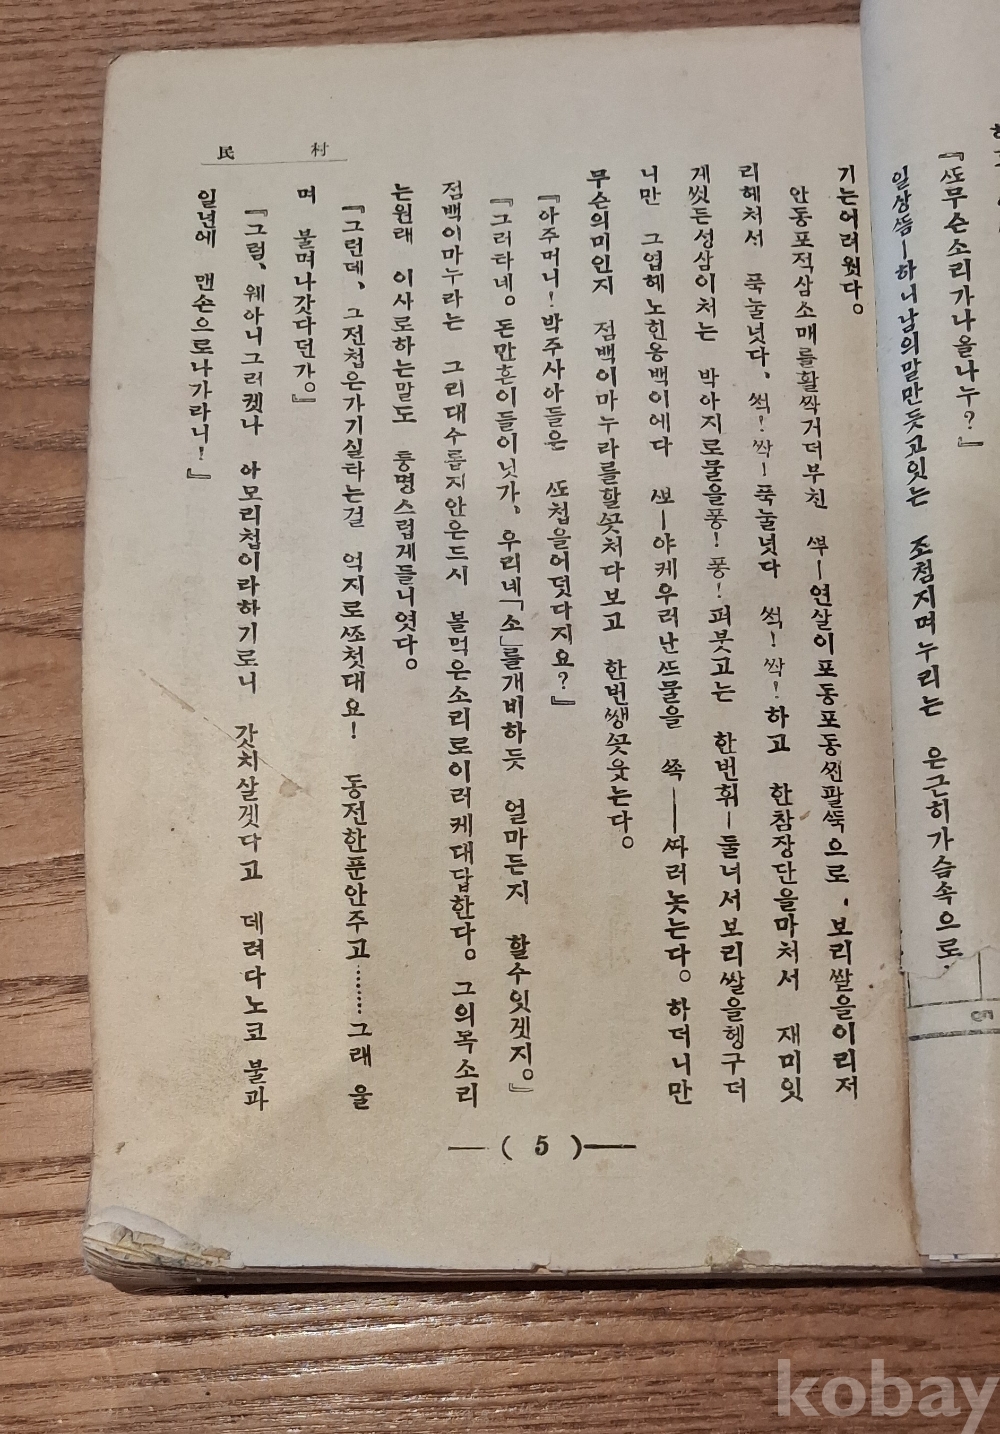 『ᄯᅩ무슨소리가나올나누?』
일상ᄯᅳᆷ―하니남의말만듯고잇는 조첨지며누리는 은근히가슴속으로
기는어려웟다。
안동포적삼소매를활싹거더부친 ᄲᅮ―연살이포동포동ᄶᅵᆫ팔ᄯᅮᆨ으로, 보리쌀을이리저
리헤처서 푹눌넛다、썩! 싹! 푹눌넛다 썩! 싹! 하고 한참장단을마처서 재미잇
게씻든성삼이처는 박아지로물을퐁! 퐁! 퍼붓고는 한번휘―둘너서보리쌀을헹구더
니만 그엽헤노힌옹백이에다 ᄲᅩ―야케우러난ᄯᅳ물을 ᄶᅩᆨ――ᄯᅡ러놋는다。 하더니만
무슨의미인지 점백이마누라를할ᄭᅳᆺ처다보고 한번ᄲᅢᆼᄭᅳᆺ웃는다。
『아주머니! 박주사아들은 ᄯᅩ첩을어덧다지요?』
『그러타네。돈만흔이들이닛가、우리네「소」를개비하듯 얼마든지 할수잇겟지。』
점백이마누라는 그리대수롭지안은드시 볼먹은소리로이러케대답한다。 그의목소리
는원래 이사로하는말도 퉁명스럽게들니엿다。
『그런데、그전첩은가기실타는걸 억지로ᄶᅩ첫대요! 동전한푼안주고………그래 울
며 불며나갓다던가。』
『그럼、웨아니그러켓나 아모리첩이라하기로니 갓치살겟다고 데려다노코 불과
일년에 맨손으로나가라니!』
民 村
―( 5 )―
kobay